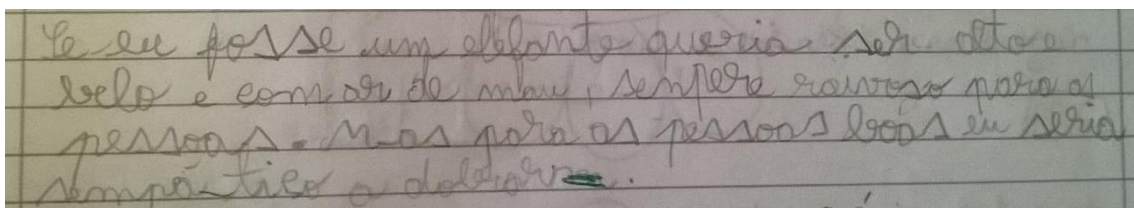 Se eu fosse um elefante queria ser alto e
belo e com ar de mau, sempere raivoso para as
pessoas. Mas para as pessoas boas eu seria
sempático e